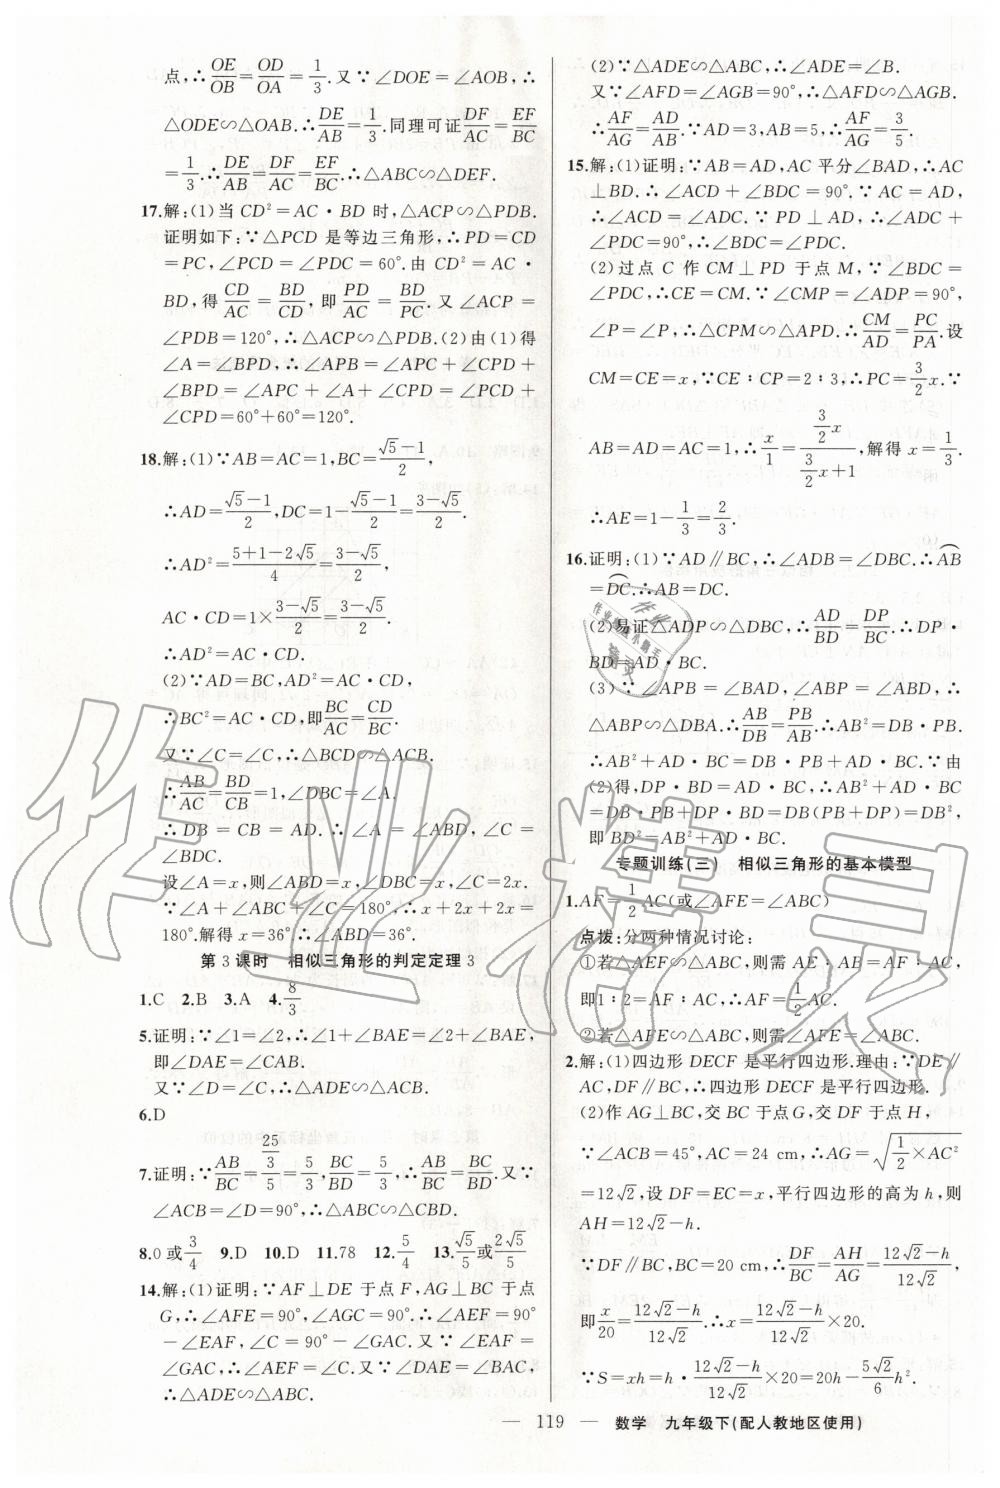 点,∴OE/OB=OD/OA=1/3.又∵∠DOE=∠AOB,∴
△ODE∽△OAB.∴DE/AB=1/3.同理可证DF/AC=EF/BC
=1/3.∴DE/AB=DF/AC=EF/BC.∴△ABC∽△DEF.
17.解:(1)当CD²=AC·BD时,△ACP∽△PDB.
证明如下:∵△PCD是等边三角形,∴PD=CD
=PC,∠PCD=∠PDC=60°.由CD²=AC·
BD,得CD/AC=BD/CD,即PD/AC=BD/PC.又∠ACP=
∠PDB=120°,∴△ACP∽△PDB.(2)由(1)得
∠A=∠BPD,∴∠APB=∠APC+∠CPD+
∠BPD=∠APC+∠A+∠CPD=∠PCD+
∠CPD=60°+60°=120°.
18.解:(1)∵AB=AC=1,BC=(√5-1)/2,
∴AD=(√5-1)/2,DC=1-(√5-1)/2=(3-√5)/2.
∴AD²=(5+1-2√5)/4=(3-√5)/2,
AC·CD=1×(3-√5)/2=(3-√5)/2.
∴AD²=AC·CD.
(2)∵AD=BC,AD²=AC·CD,
∴BC²=AC·CD,即BC/AC=CD/BC.
又∵∠C=∠C,∴△BCD∽△ACB.
∴AB/AC=BD/CB=1,∠DBC=∠A.
∴DB=CB=AD.∴∠A=∠ABD,∠C=
∠BDC.
设∠A=x,则∠ABD=x,∠DBC=x,∠C=2x.
∵∠A+∠ABC+∠C=180°,∴x+2x+2x=
180°.解得x=36°.∴∠ABD=36°.
第3课时 相似三角形的判定定理3
1.C 2.B 3.A 4.8/3
5.证明:∵∠1=∠2,∴∠1+∠BAE=∠2+∠BAE,
即∠DAE=∠CAB.
又∵∠D=∠C,∴△ADE∽△ACB.
6.D
7.证明:∵AB/BC=(25/3)/5=5/3,BC/BD=5/3,∴AB/BC=BC/BD.又∵
∠ACB=∠D=90°,∴△ABC∽△CBD.
8.0或3/4 9.D 10.D 11.78 12.5/4 13.√5/5或2√5/5
14.解:(1)证明:∵AF⊥DE于点F,AG⊥BC于点
G,∴∠AFE=90°,∠AGC=90°.∴∠AEF=90°
-∠EAF,∠C=90°-∠GAC.又∵∠EAF=
∠GAC,∴∠AEF=∠C.又∵∠DAE=∠BAC,
∴△ADE∽△ABC.
(2)∵△ADE∽△ABC,∴∠ADE=∠B.
又∵∠AFD=∠AGB=90°,∴△AFD∽△AGB.
∴AF/AG=AD/AB.∵AD=3,AB=5,∴AF/AG=3/5.
15.解:(1)证明:∵AB=AD,AC平分∠BAD,∴AC
⊥BD.∴∠ACD+∠BDC=90°.∵AC=AD,
∴∠ACD=∠ADC.∵PD⊥AD,∴∠ADC+
∠PDC=90°,∴∠BDC=∠PDC.
(2)过点C作CM⊥PD于点M,∵∠BDC=
∠PDC,∴CE=CM.∵∠CMP=∠ADP=90°,
∠P=∠P,∴△CPM∽△APD.∴CM/AD=PC/PA.设
CM=CE=x,∵CE:CP=2:3,∴PC=3/2x.∵
AB=AD=AC=1,∴x/1=(3/2x)/(3/2x+1),解得x=1/3.
∴AE=1-1/3=2/3.
16.证明:(1)∵AD∥BC,∴∠ADB=∠DBC.∴⌒AB
=⌒DC.∴AB=DC.
(2)易证△ADP∽△DBC,∴AD/BD=DP/BC.∴DP·
BD=AD·BC.
(3)∵∠APB=∠BAD,∠ABP=∠ABD,∴
△ABP∽△DBA.∴AB/DB=PB/AB.∴AB²=DB·PB.
∴AB²+AD·BC=DB·PB+AD·BC.∵由
(2)得,DP·BD=AD·BC,∴AB²+AD·BC=
DB·PB+DP·BD=DB(PB+DP)=DB²,
即BD²=AB²+AD·BC.
专题训练(三) 相似三角形的基本模型
1.AF=1/2AC(或∠AFE=∠ABC)
点拨:分两种情况讨论:
①若△AEF∽△ABC,则需AE:AB=AF:AC,
即1:2=AF:AC,∴AF=1/2AC.
②若△AFE∽△ABC,则需∠AFE=∠ABC.
2.解:(1)四边形DECF是平行四边形.理由:∵DE∥
AC,DF∥BC,∴四边形DECF是平行四边形.
(2)作AG⊥BC,交BC于点G,交DF于点H,
∵∠ACB=45°,AC=24 cm,∴AG=√(1/2×AC²)
=12√2,设DF=EC=x,平行四边形的高为h,则
AH=12√2-h.
∵DF∥BC,BC=20 cm,∴DF/BC=AH/AG=(12√2-h)/12√2,
即x/20=(12√2-h)/12√2.∴x=(12√2-h)/12√2×20.
∵S=xh=h·(12√2-h)/12√2×20=20h-5√2/6h².
— 119 — 数学 九年级下(配人教地区使用)
作业精灵